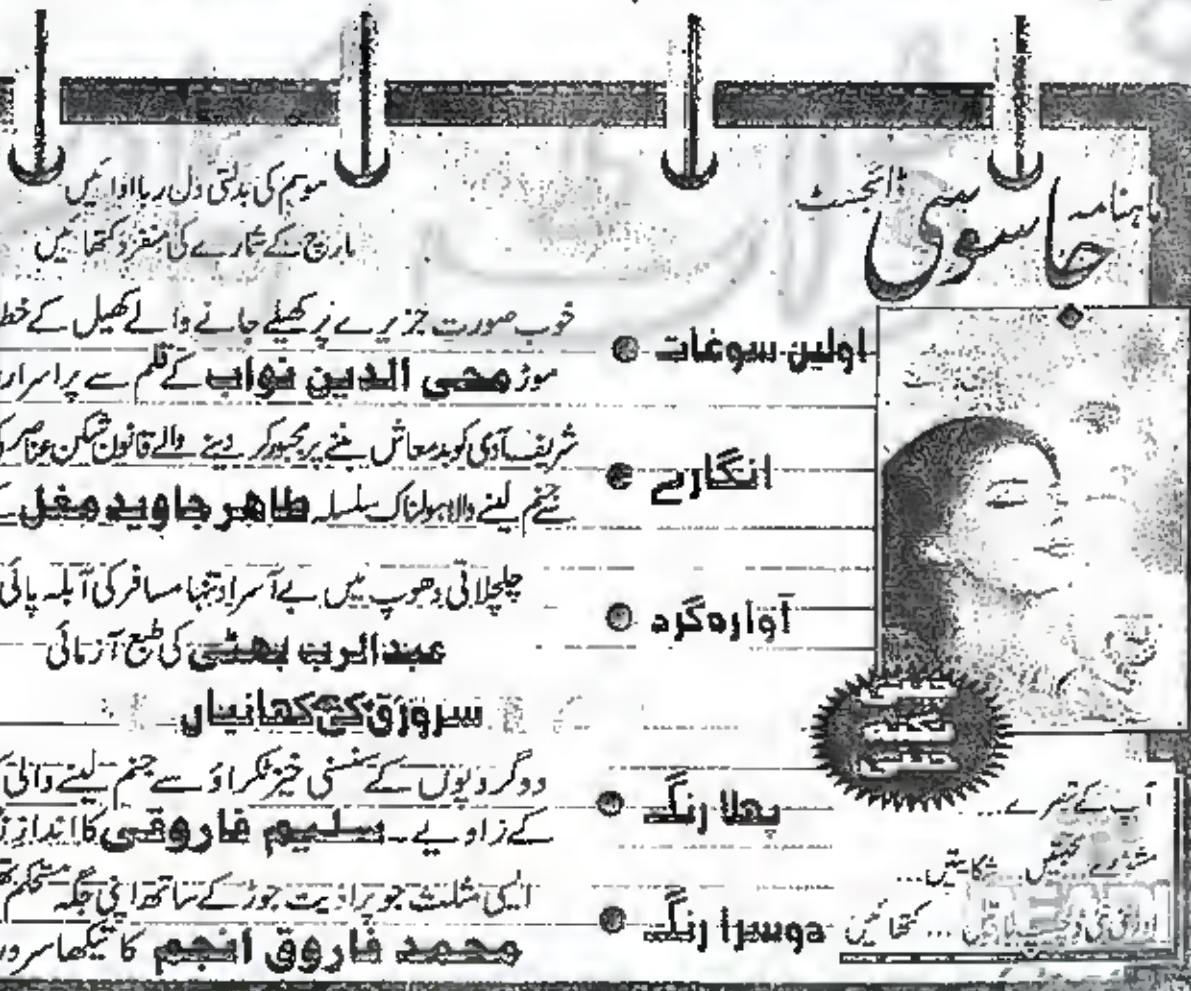 ماہنامہ جاسوسی ڈائجسٹ
موسم کی بدلتی دل ربا ادائیں
مارچ کے شمارے کی منفرد کتھائیں
اولین سوغات
خوب صورت جزیرے پر کھیلے جانے والے کھیل کے
موڑ محی الدین نواب کے قلم سے پراسرار
انگارے
شریف آدمی کو بدمعاش بننے پر مجبور کر دینے والے قانون شکن عناصر
جنم لینے والا ہولناک سلسلہ طاہر جاوید مغل
آوارہ گرد
چلچلاتی دھوپ میں بے آسرا و تنہا مسافر کی آبلہ پائی
عبدالرب بھٹی کی طبع آزمائی
سرورق کی کہانیاں
پہلا رنگ
دو گروہوں کے سنسنی خیز ٹکراؤ سے جنم لینے والی
کے زاویے۔ سلیم فاروقی کا انداز
دوسرا رنگ
ایسی مثلث جو ہر اذیت جوڑ کے ساتھ اپنی جگہ مستحکم
محمد فاروق انجم کا تیکھا
چینی
نکتہ
چینی
آپ کے تبصرے...
مشورے محبتیں شکایتیں...
کتھائیں